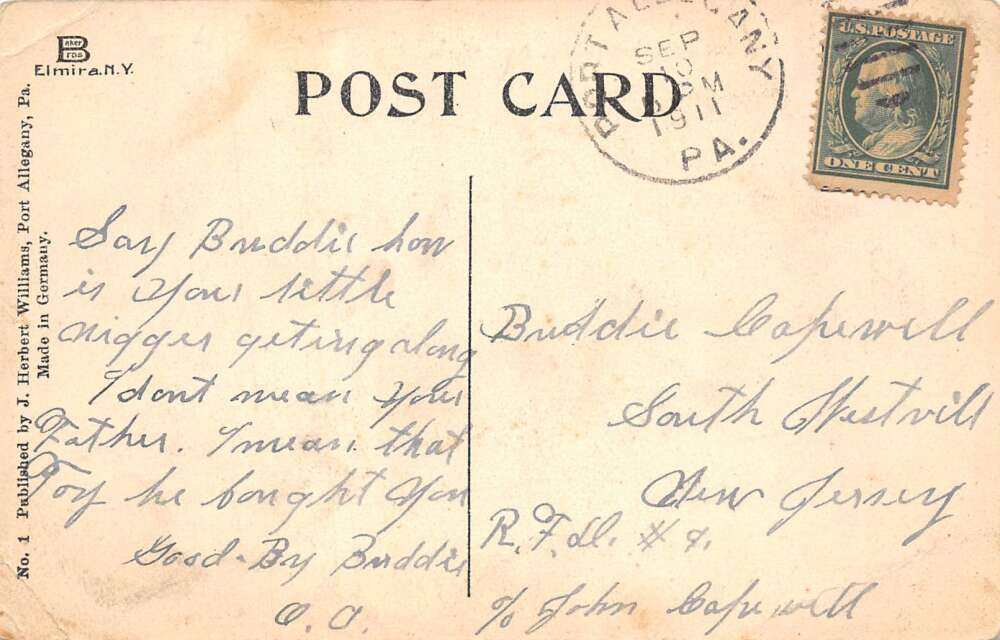 Baker
Bros
Elmira.N.Y.
POST CARD
PORT ALLEGANY
SEP
10
M
1911
PA.
U.S. POSTAGE
ONE CENT
No. 1 Published by J. Herbert Williams, Port Allegany, Pa.
Made in Germany.
Say Buddie how
is your little
nigger geting along
I dont mean your
Father. I mean that
Toy he bought you
Good-By Buddie
Buddie Capewell
South Westvill
New Jersey
R.F.D. #
c/o John Capewell